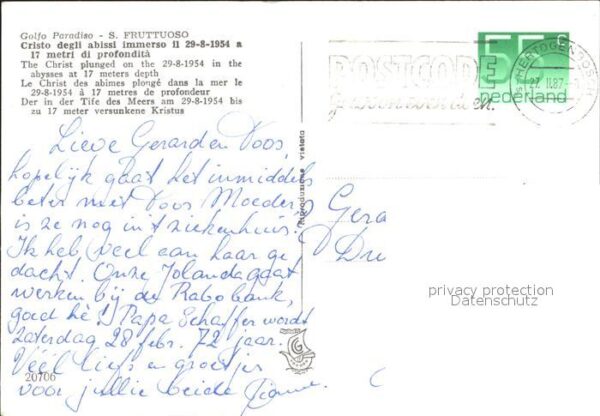 Golfo Paradiso - S. FRUTTUOSO
Cristo degli abissi immerso il 29-8-1954 a
17 metri di profondità
The Christ plunged on the 29-8-1954 in the
abysses at 17 meters depth
Le Christ des abimes plongé dans la mer le
29-8-1954 à 17 mètres de profondeur
Der in der Tife des Meers am 29-8-1954 bis
zu 17 meter versunkene Kristus
Lieve Gerard en Toos,
hopelijk gaat het inmiddels
beter met Toos Moeder,
is ze nog in t ziekenhuis?
Ik heb veel aan haar ge
dacht. Onze Jolanda gaat
werken bij de Rabobank,
goed hè! Papa Schaffer wordt
zaterdag 28 febr. 72 jaar.
Véél liefs en groetjes
voor jullie beide
20706
Riproduzione vietata
POSTCODE
55 c
nederland
'S-HERTOGENBOSCH
27.II.87
Gera
Dri
privacy protection
Datenschutz